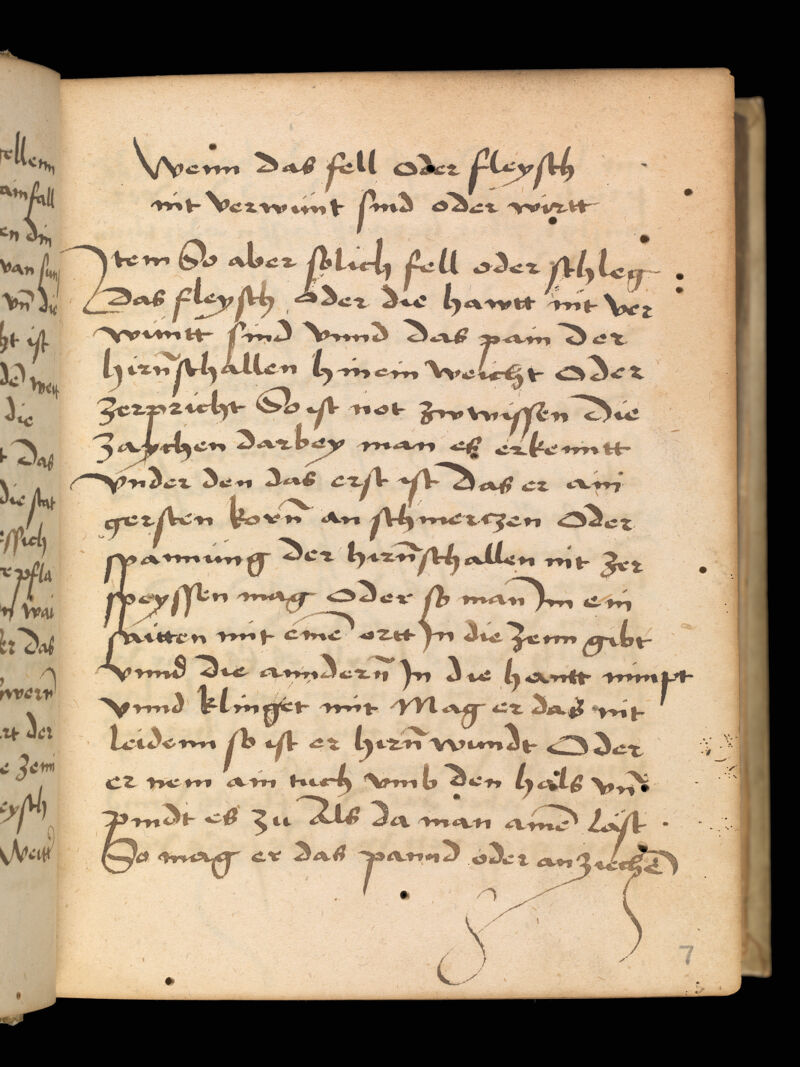 Wenn das fell oder fleysch
nit verwünt sind oder wirtt
Item So aber solich fell oder schleg
Das fleysch oder die hawtt nit ver
wüntt sind vnnd das pain der
hirn̄schallen hinein weicht Oder
zerpricht So ist not zwwissen Die
zaychen darbey man es erkenntt
vnder den das erst ist Das er ain
gersten korn̄ an schmerczen Oder
spannüng der hirn̄schallen nit zer
peyssen mag Oder so man Im ein
saitten mit eine͞ ortt In die zenn gibt
vnnd die anndern̄ In die hantt nimpt
vnnd klinget mit Mag er das nit
leidenn so ist er hirn̄ wundt Oder
er nem ain tuch vmb den hals vn̄
pindt es zu Als da man aine͞ last
So mag er das pannd oder anziechen̄
7
ellenn
ainfall
en din
van
vn̄ die
ht ist
die
Das
die stat
essich
pfla
wai
er das
rt der
e zenn
eysch